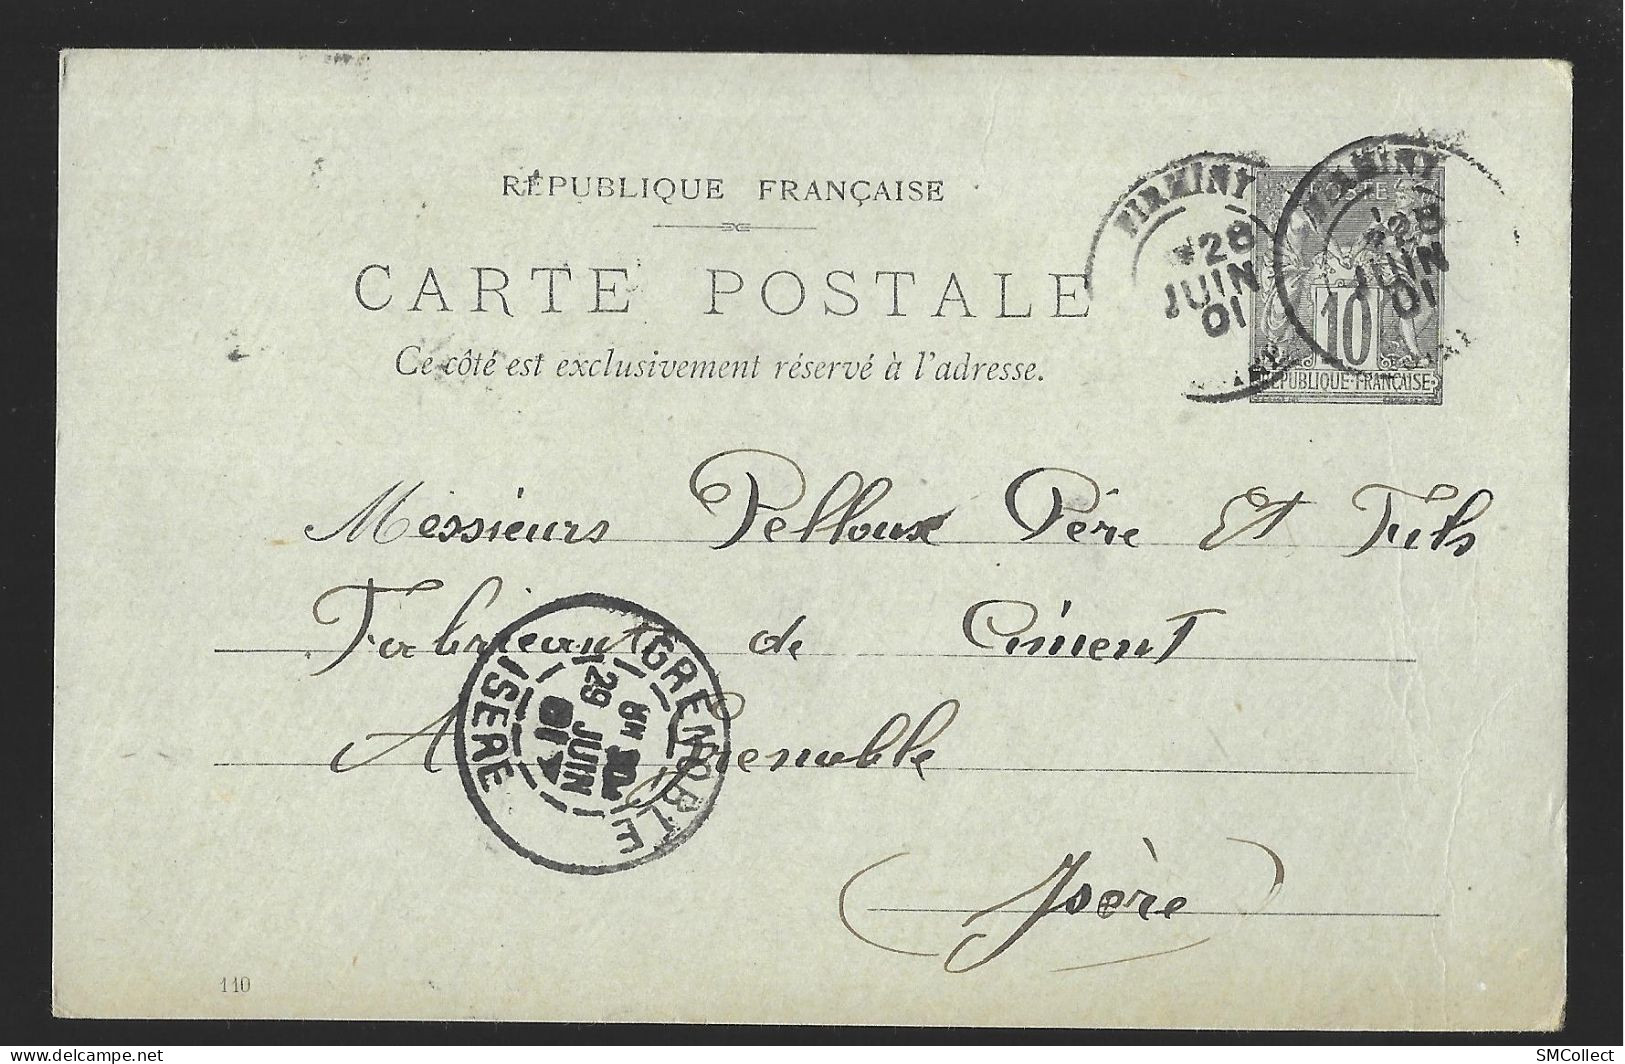 RÉPUBLIQUE FRANÇAISE
CARTE POSTALE
Ce côté est exclusivement réservé à l'adresse.
FIRMINY
28
JUIN
01
FIRMINY
28
JUIN
01
10
RÉPUBLIQUE FRANÇAISE
Messieurs Pelloux Père Et Fils
Fabricant de Ciment
A Grenoble
(Isère)
GRENOBLE
29 JUIN
01
ISERE
110
SMCollect